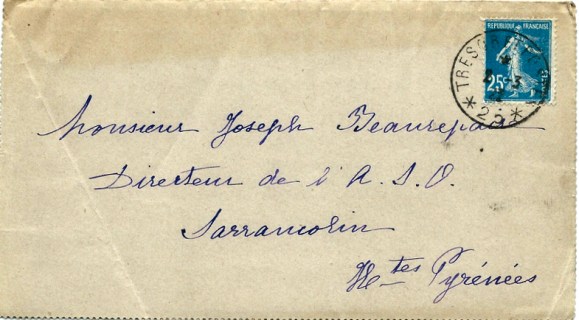 REPUBLIQUE FRANÇAISE
25c
TRESOR
* 22 *
Monsieur Joseph Beaurepaire
Directeur de l'A.S.O.
Sarrancolin
Htes Pyrénées